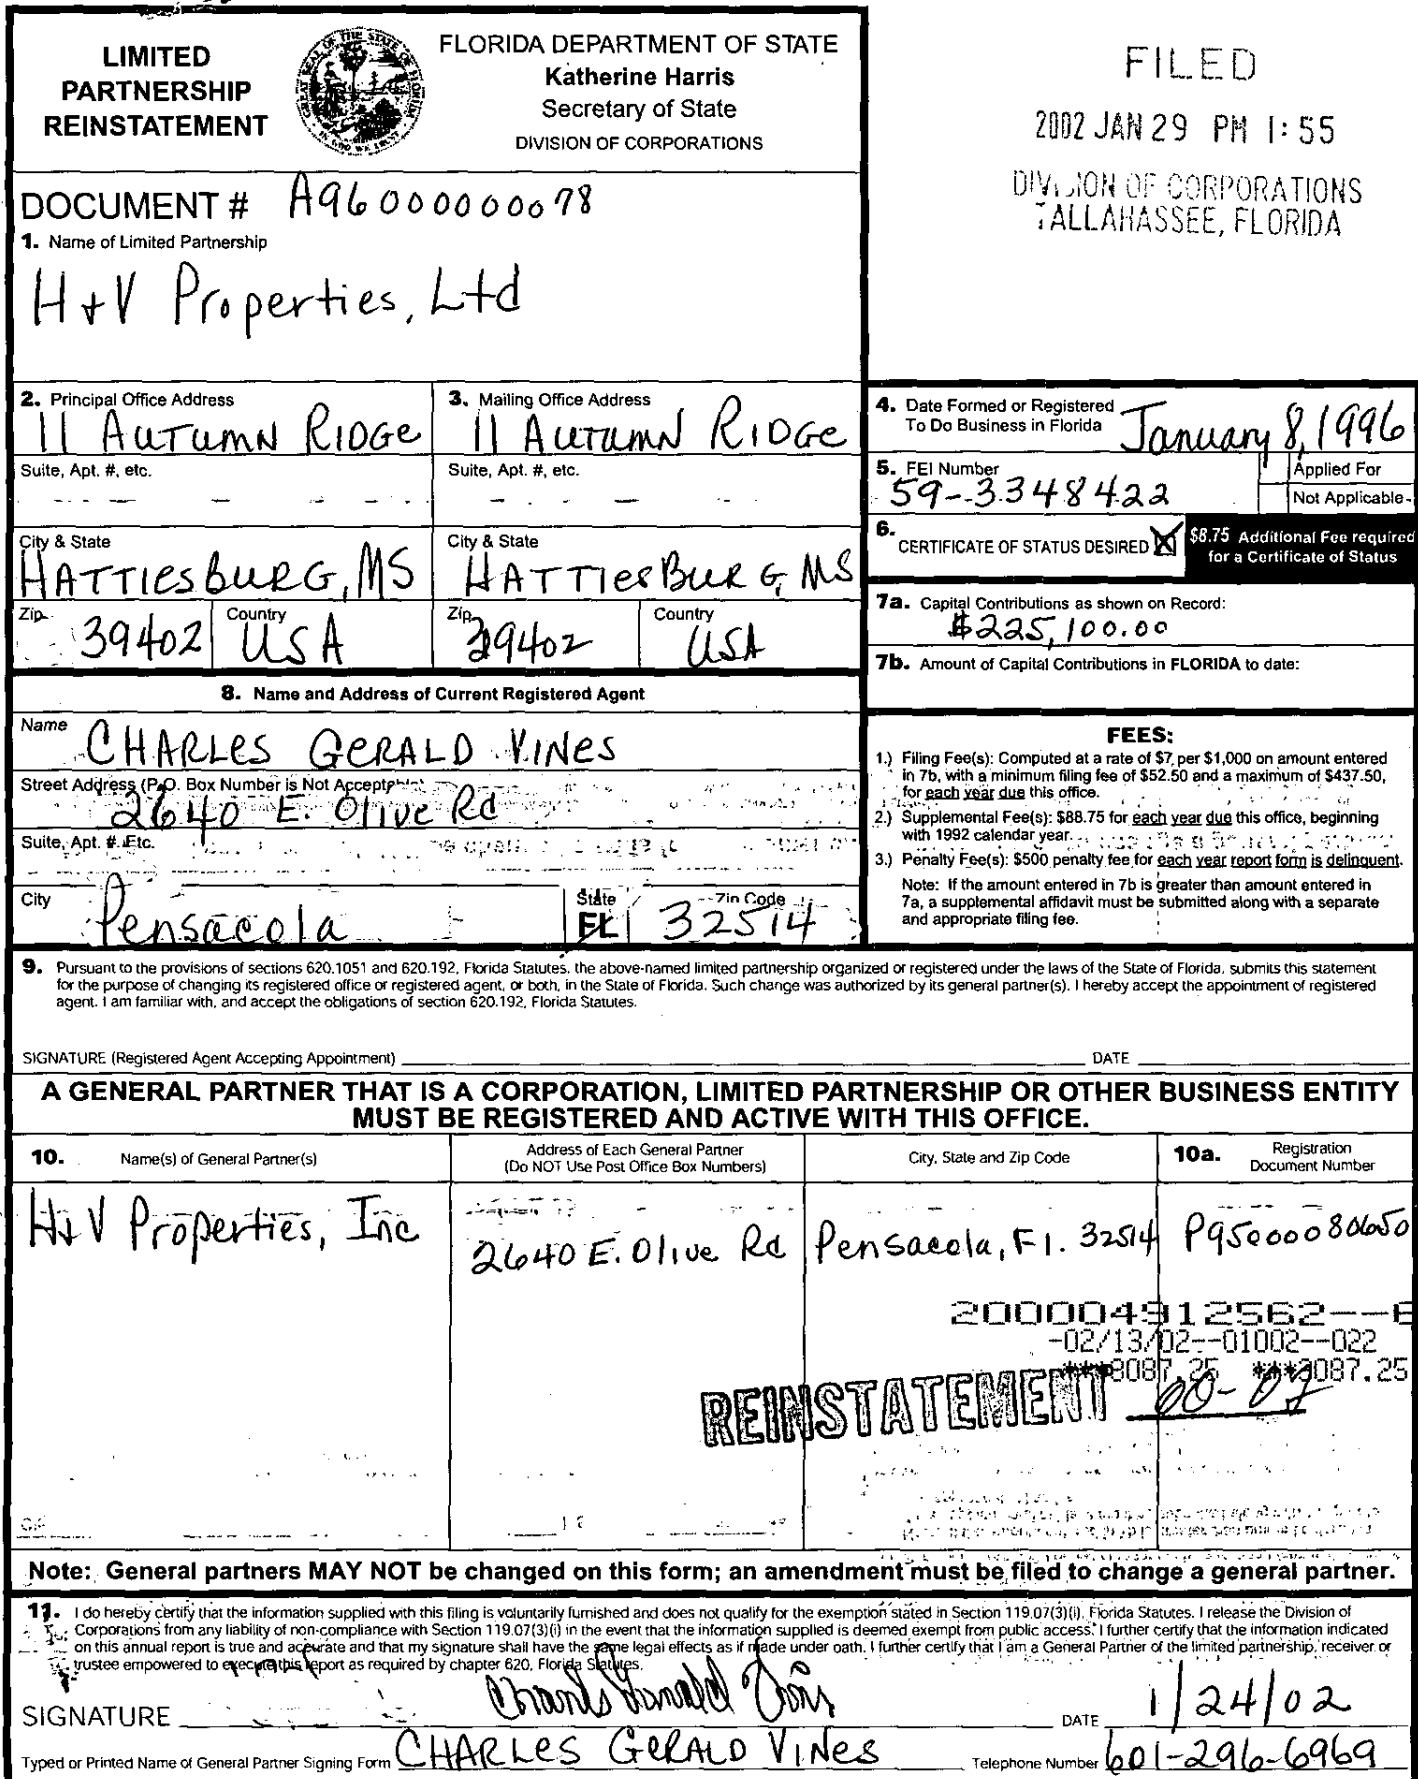 LIMITED
PARTNERSHIP
REINSTATEMENT
FLORIDA DEPARTMENT OF STATE
Katherine Harris
Secretary of State
DIVISION OF CORPORATIONS
FILED
2002 JAN 29 PM 1:55
DIVISION OF CORPORATIONS
TALLAHASSEE, FLORIDA
DOCUMENT # A96000000078
1. Name of Limited Partnership
H+V Properties, Ltd
2. Principal Office Address
11 AUTUMN RIDGe
Suite, Apt. #, etc.
City & State
HATTIesBURG, MS
Zip
39402
Country
USA
3. Mailing Office Address
11 AUTUMN RIDGe
Suite, Apt. #, etc.
City & State
HATTIesBURG, MS
Zip
39402
Country
USA
4. Date Formed or Registered
To Do Business in Florida
January 8, 1996
5. FEI Number
59-3348422
Applied For
Not Applicable
6. CERTIFICATE OF STATUS DESIRED X
$8.75 Additional Fee required
for a Certificate of Status
7a. Capital Contributions as shown on Record:
$225,100.00
7b. Amount of Capital Contributions in FLORIDA to date:
8. Name and Address of Current Registered Agent
Name
CHARLeS GeRALD VINeS
Street Address (P.O. Box Number is Not Acceptable)
2640 E. Olive Rd
Suite, Apt. #. Etc.
City
Pensacola
State
FL
Zip Code
32514
FEES:
1.) Filing Fee(s): Computed at a rate of $7 per $1,000 on amount entered
in 7b, with a minimum filing fee of $52.50 and a maximum of $437.50,
for each year due this office.
2.) Supplemental Fee(s): $88.75 for each year due this office, beginning
with 1992 calendar year.
3.) Penalty Fee(s): $500 penalty fee for each year report form is delinquent.
Note: If the amount entered in 7b is greater than amount entered in
7a, a supplemental affidavit must be submitted along with a separate
and appropriate filing fee.
9. Pursuant to the provisions of sections 620.1051 and 620.192, Florida Statutes, the above-named limited partnership organized or registered under the laws of the State of Florida, submits this statement
for the purpose of changing its registered office or registered agent, or both, in the State of Florida. Such change was authorized by its general partner(s). I hereby accept the appointment of registered
agent. I am familiar with, and accept the obligations of section 620.192, Florida Statutes.
SIGNATURE (Registered Agent Accepting Appointment)
DATE
A GENERAL PARTNER THAT IS A CORPORATION, LIMITED PARTNERSHIP OR OTHER BUSINESS ENTITY
MUST BE REGISTERED AND ACTIVE WITH THIS OFFICE.
10. Name(s) of General Partner(s)
Address of Each General Partner
(Do NOT Use Post Office Box Numbers)
City, State and Zip Code
10a. Registration
Document Number
H+V Properties, Inc
2640 E. Olive Rd
Pensacola, Fl. 32514
P95000080650
200004912562--6
-02/13/02--01002--022
***8087.25 ***3087.25
REINSTATEMENT 00-02
Note: General partners MAY NOT be changed on this form; an amendment must be filed to change a general partner.
11. I do hereby certify that the information supplied with this filing is voluntarily furnished and does not qualify for the exemption stated in Section 119.07(3)(i), Florida Statutes. I release the Division of
Corporations from any liability of non-compliance with Section 119.07(3)(i) in the event that the information supplied is deemed exempt from public access. I further certify that the information indicated
on this annual report is true and accurate and that my signature shall have the same legal effects as if made under oath. I further certify that I am a General Partner of the limited partnership, receiver or
trustee empowered to execute this report as required by chapter 620, Florida Statutes.
SIGNATURE Charles Gerald Vines
DATE 1/24/02
Typed or Printed Name of General Partner Signing Form CHARLeS GeRALD VINeS
Telephone Number 601-296-6969